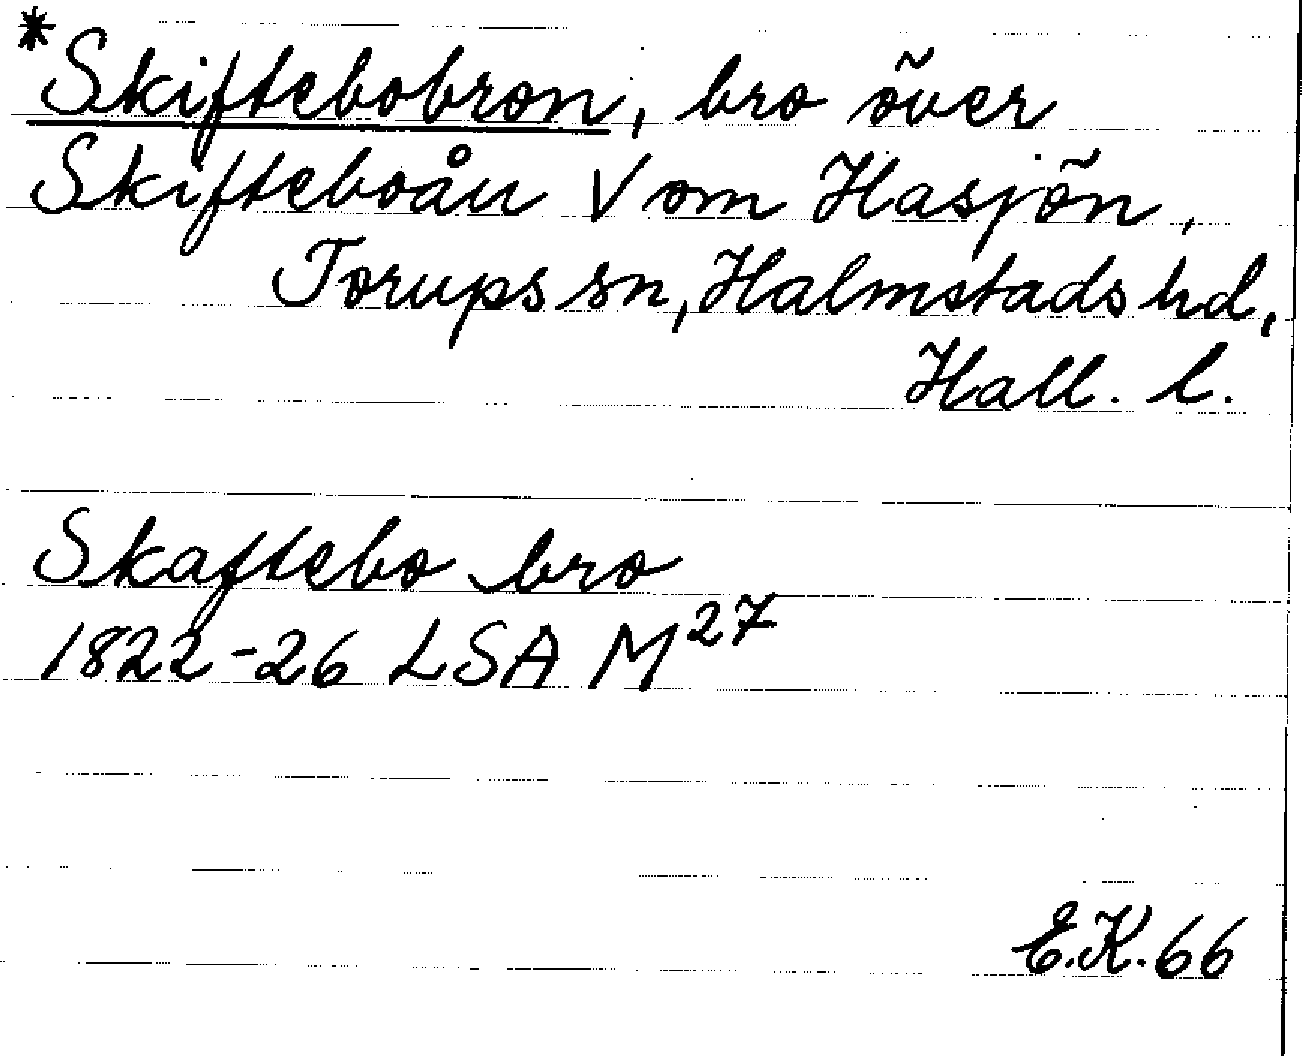 *Skiftebobron, bro över
Skifteboån V om Hasjön,
Torups sn, Halmstads hd,
Hall. l.
Skaftebo bro
1822-26 LSA M²⁷
E.K. 66